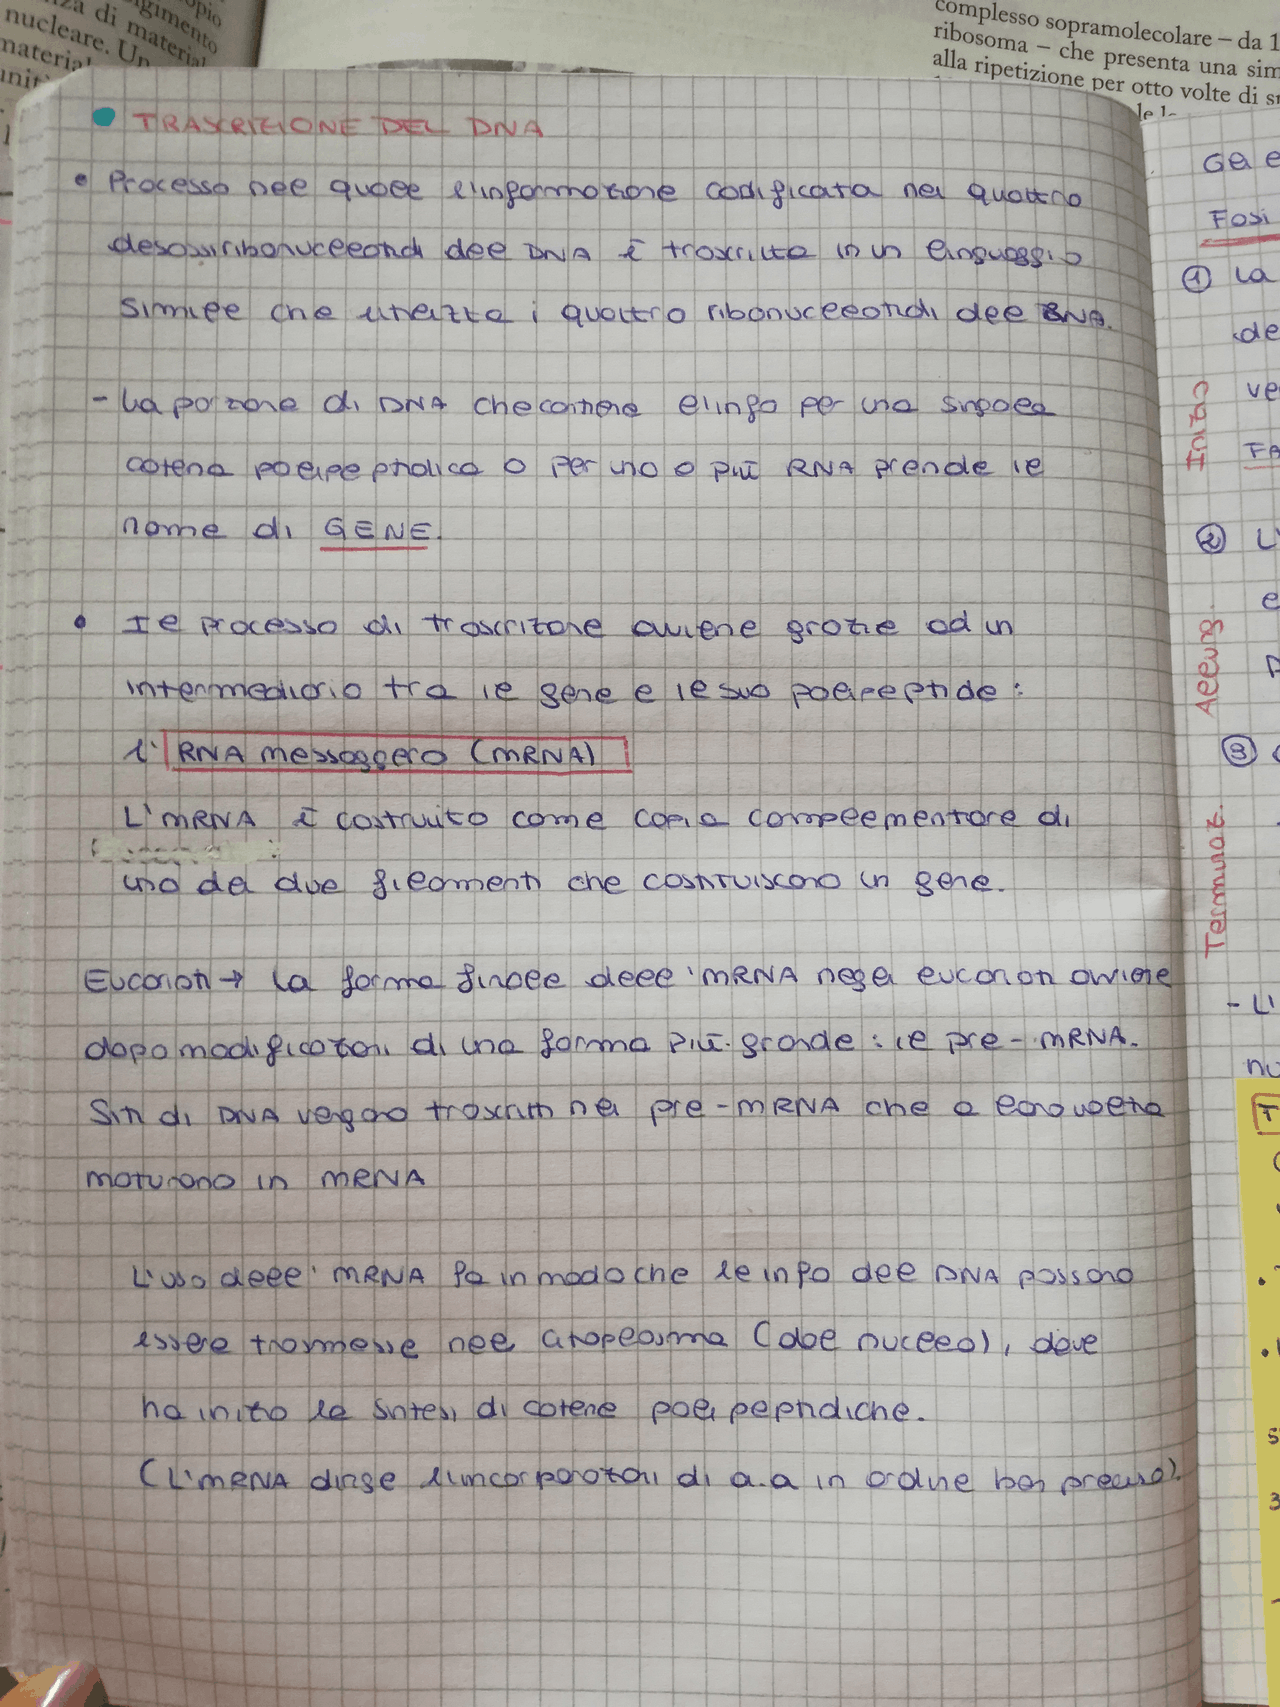 opio
lgimento
nza di material
nucleare. Un
material
unit
complesso sopramolecolare – da 1
ribosoma – che presenta una sim
alla ripetizione per otto volte di
TRASCRIZIONE DEL DNA
• Processo nel quale l'informazione codificata nei quattro
desossiribonucleotidi del DNA è trascritta in un linguaggio
simile che utilizza i quattro ribonucleotidi del RNA.
- La porzione di DNA che contiene l'info per una singola
catena polipeptidica o per uno o più RNA prende il
nome di GENE.
• Il processo di trascrizione avviene grazie ad un
intermediario tra il gene e il suo polipeptide:
l'RNA messaggero (mRNA)
L'mRNA è costruito come copia complementare di
uno dei due filamenti che costituiscono un gene.
Eucarioti → La forma finale dell'mRNA negli eucarioti avviene
dopo modificazioni di una forma più grande: il pre-mRNA.
Siti di DNA vengono trascritti nei pre-mRNA che a loro volta
maturano in mRNA
L'uso dell'mRNA fa in modo che le info del DNA possono
essere trasmesse nel citoplasma (dal nucleo), dove
ha inizio la sintesi di catene polipeptidiche.
(L'mRNA dirige l'incorporazioni di a.a in ordine ben preciso).
Gli e
Fasi
① La
de
ve
Inizio
FA
② L'
e
Allung.
P
③
Terminaz.
- L'
nu
T